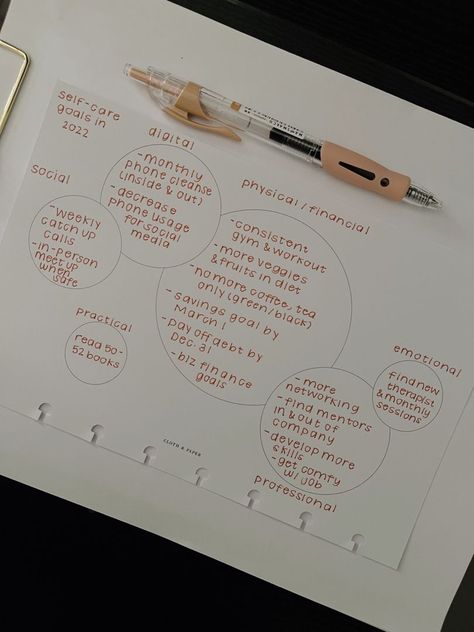 self-care
goals in
2022
digital
-monthly
phone cleanse
(inside & out)
-decrease
phone usage
for social
media
social
-weekly
catch up
calls
-in-person
meet up
when
safe
physical/financial
-consistent
gym & workout
-more veggies
& fruits in diet
-no more coffee, tea
only (green/black)
-savings goal by
March 1
-pay off debt by
Dec. 31
-biz finance
goals
practical
read 50-
52 books
emotional
find new
therapist
& monthly
sessions
-more
networking
-find mentors
in & out of
company
-develop more
skills
-get comfy
w/ job
professional
CLOTH & PAPER